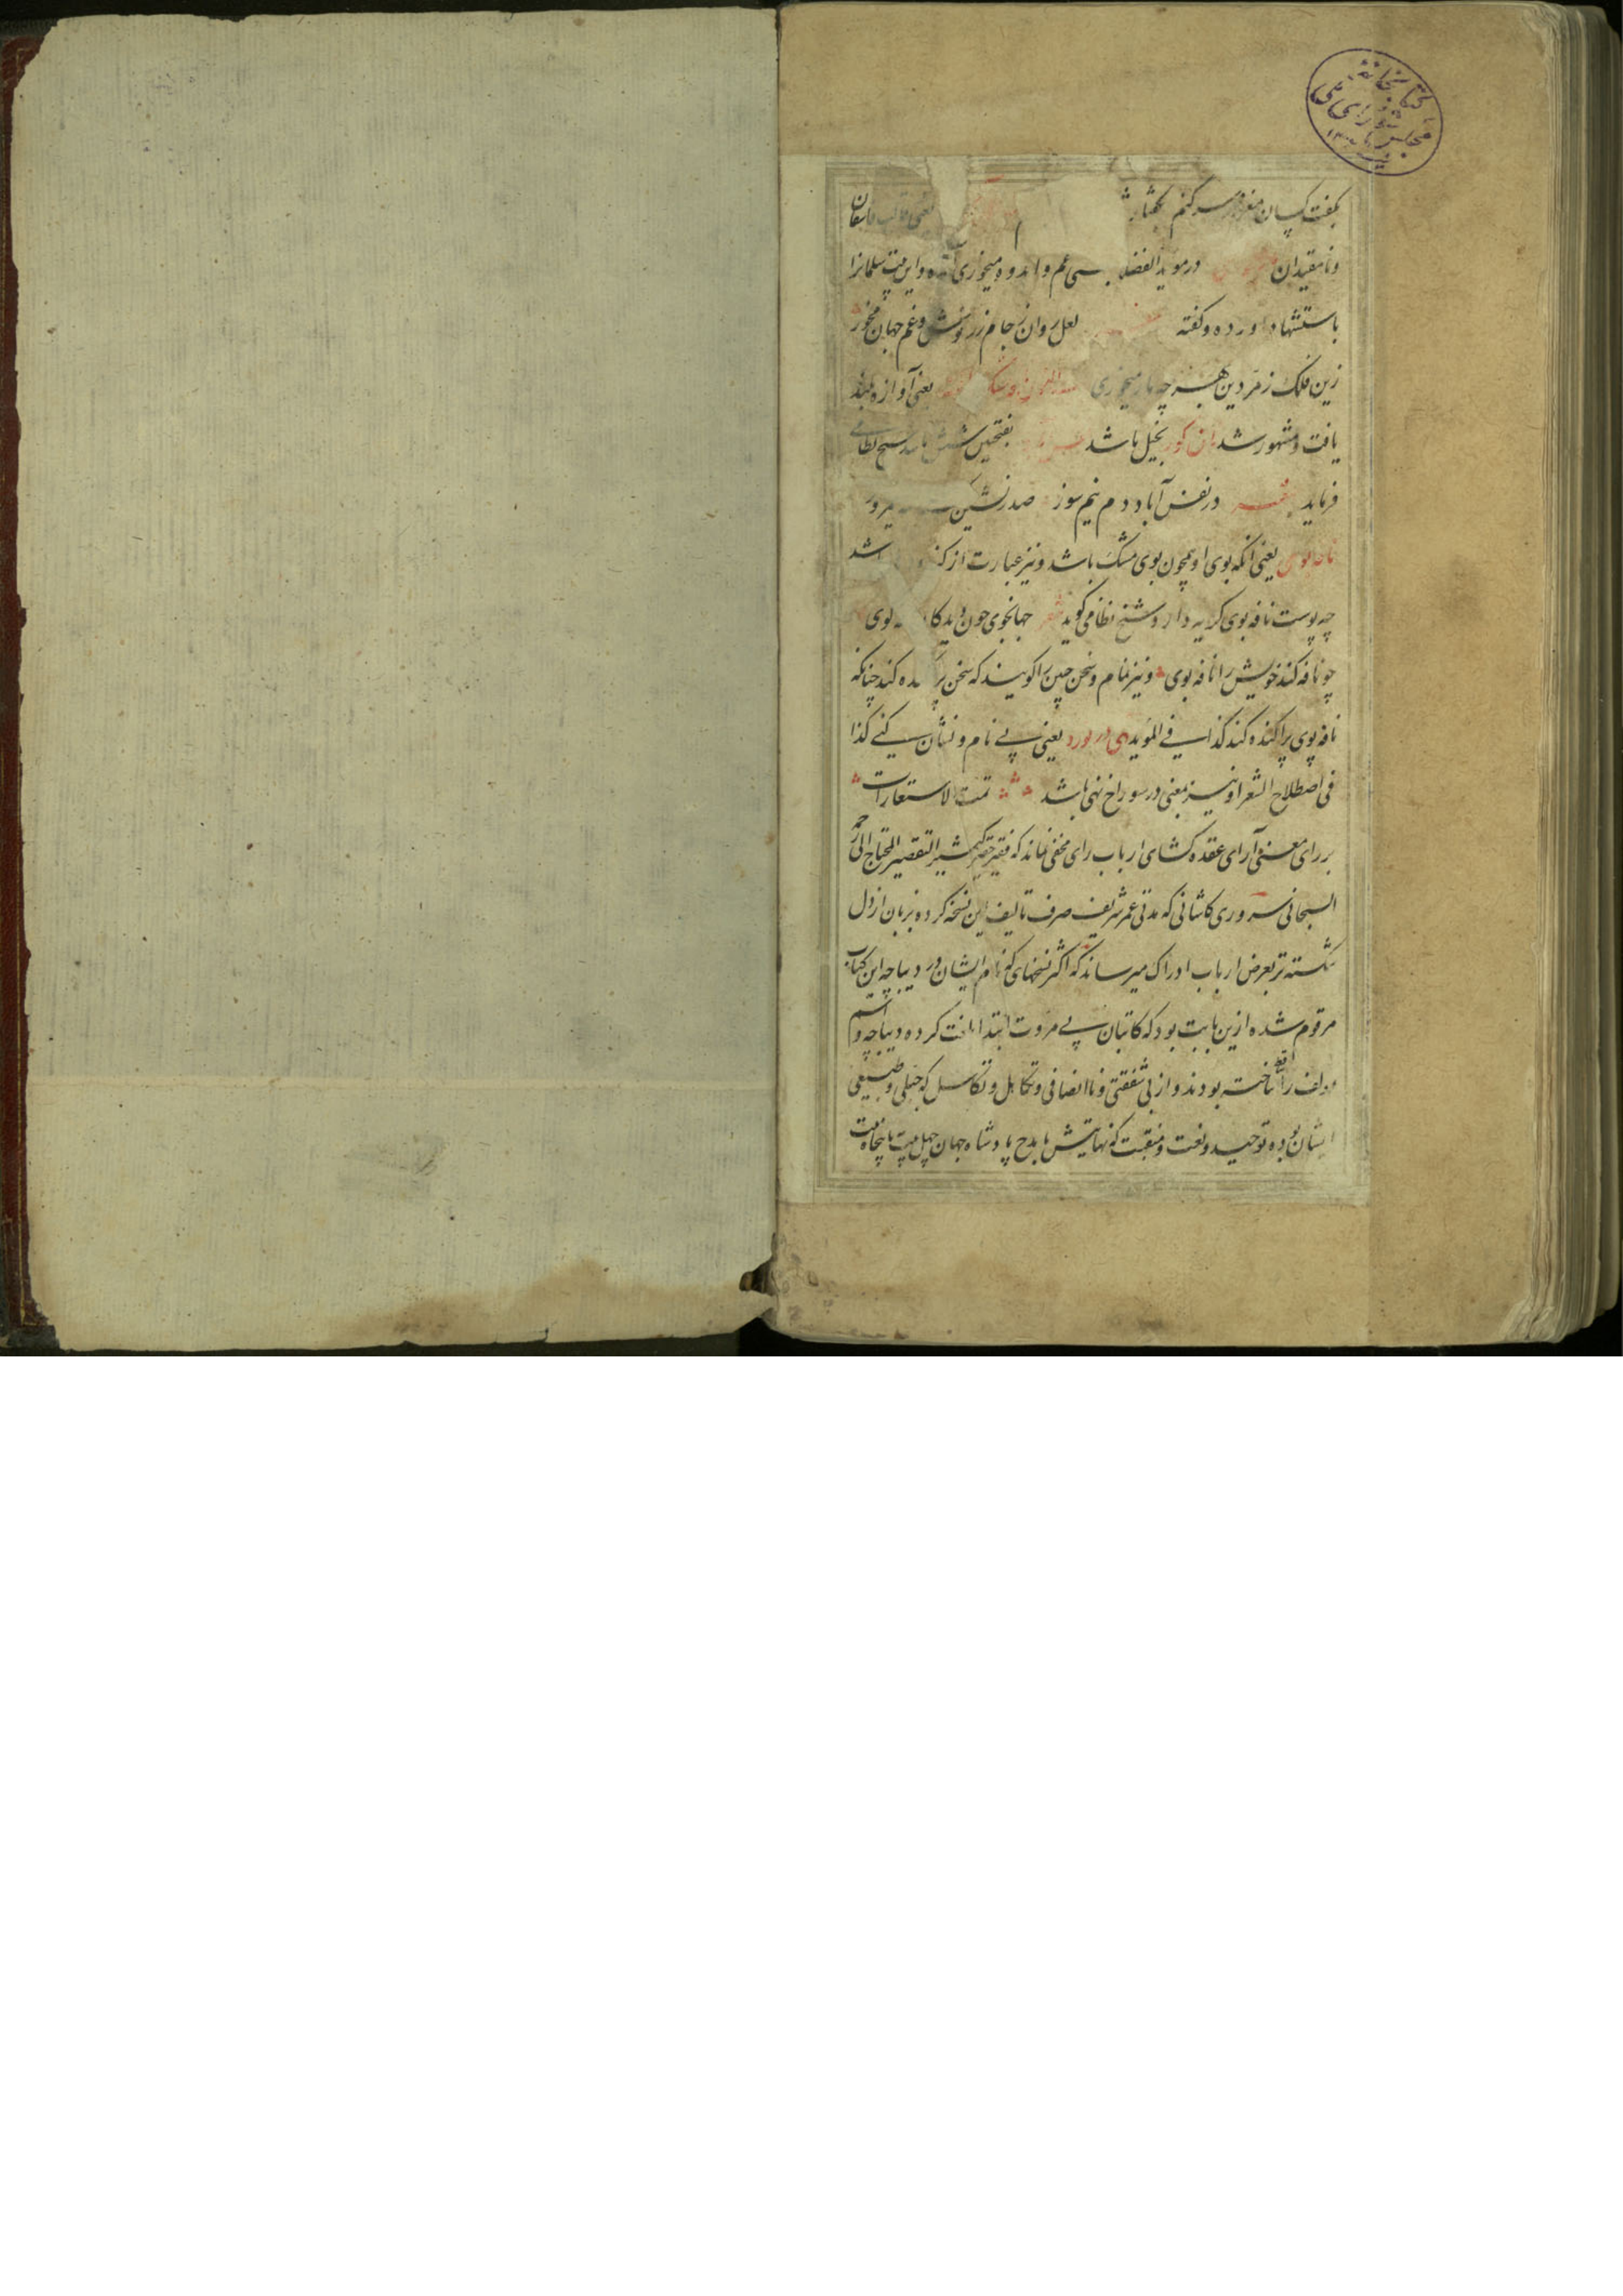 کتابخانه
مجلس شورای ملی
بگفت کسان مغز سر کنم
و نامقیدان در موید الفضلا بمعنی غم و اندوه میخوری آمده و این بیت سلمانرا
باستشهاد آورده و گفته لعل روان ز جام زر نوش و غم جهان مخور
زین فلک زمردین بهر چه مار میخوری یعنی آوازه بلند
یافت و مشهور شد نان کور بخیل باشد بفتحین شش باشد شیخ نظامی
فرماید در نفس آباد دم نیم سوز صدر نشین
نافه بوی یعنی آنکه بوی او همچون بوی مشک باشد و نیز عبارت از
چه پوست نافه بوی کریه دارد و شیخ نظامی گوید شعر جهانجوی چون دید کا بوی
چو نافه کند خویش را نافه بوی و نیز نمام و سخن چین را گویند که سخن پراکنده کند چنانکه
نافه بوی پراکنده کند کذا فی الموید یعنی پی نام و نشان کنی کذا
فی اصطلاح الشعرا و نیز بمعنی در سوراخ نهی باشد تمت الاستعارات
بر رای معنی آرای عقده گشای ارباب رای مخفی نماند که فقیر حقیر کثیر التقصیر المحتاج الی رحمة
السبحانی سروری کاشانی که مدتی عمر شریف صرف تالیف این نسخه کرده بزبان از دل
شکسته تر بعرض ارباب ادراک میرساند که اکثر نسخهای که نام ایشان در دیباچه این کتاب
مرقوم شده ازین بابت بود که کاتبان بی مروت ابتدا بلغت کرده دیباچه و اسم
مولف را ساقط ساخته بودند و از بی شفقتی و ناانصافی و تکاهل و تکاسل که جبلی و طبیعی
ایشان بوده توحید و نعت و منقبت که نهایتش با مدح پادشاه جهان چهل بیت یا پنجاه بیت